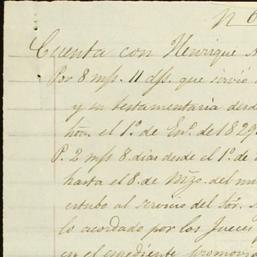 N
Cuenta con Henrique
Por 8 mss. 11 dss. que sirvió
y su testamentaria desde
hta. el 1º. de Enº. de 1829.
P. 2 mss 8. dias desde el 1º. de
hasta el 8. de Mzo. del
estubo al servicio del Sor.
lo acordado por los Jueces
en el espediente promovi